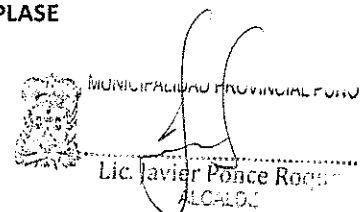 PLASE
MUNICIPALIDAD PROVINCIAL PUNO
Lic. Javier Ponce Roque
ALCALDE